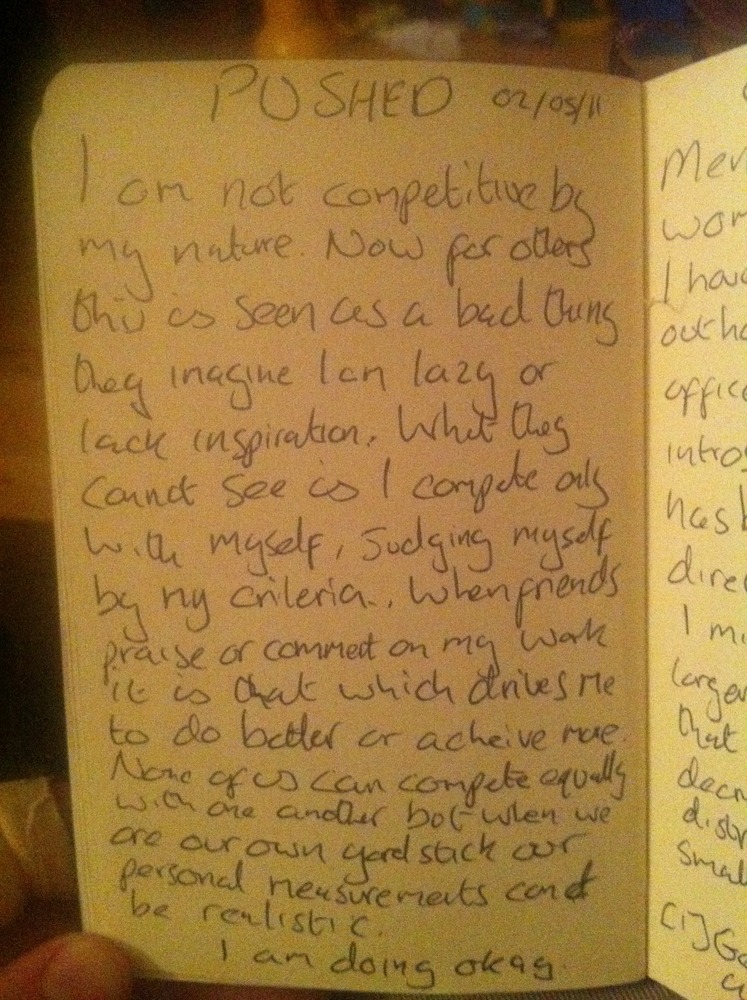 PUSHED 02/05/11
I am not competitive by
my nature. Now for others
this is seen as a bad thing
they imagine I am lazy or
lack inspiration. What they
cannot see is I compete only
with myself, Judging myself
by my criteria.. When friends
praise or comment on my work
it is that which drives me
to do better or acheive more.
None of us can compete equally
with one another but when we
are our own yardstick our
personal measurements
be realistic.
I am doing okay.
Mer
wor
I hav
out ho
office
intros
has b
direc
I mi
larger
that
decr
disbr
smal
[1] Ge